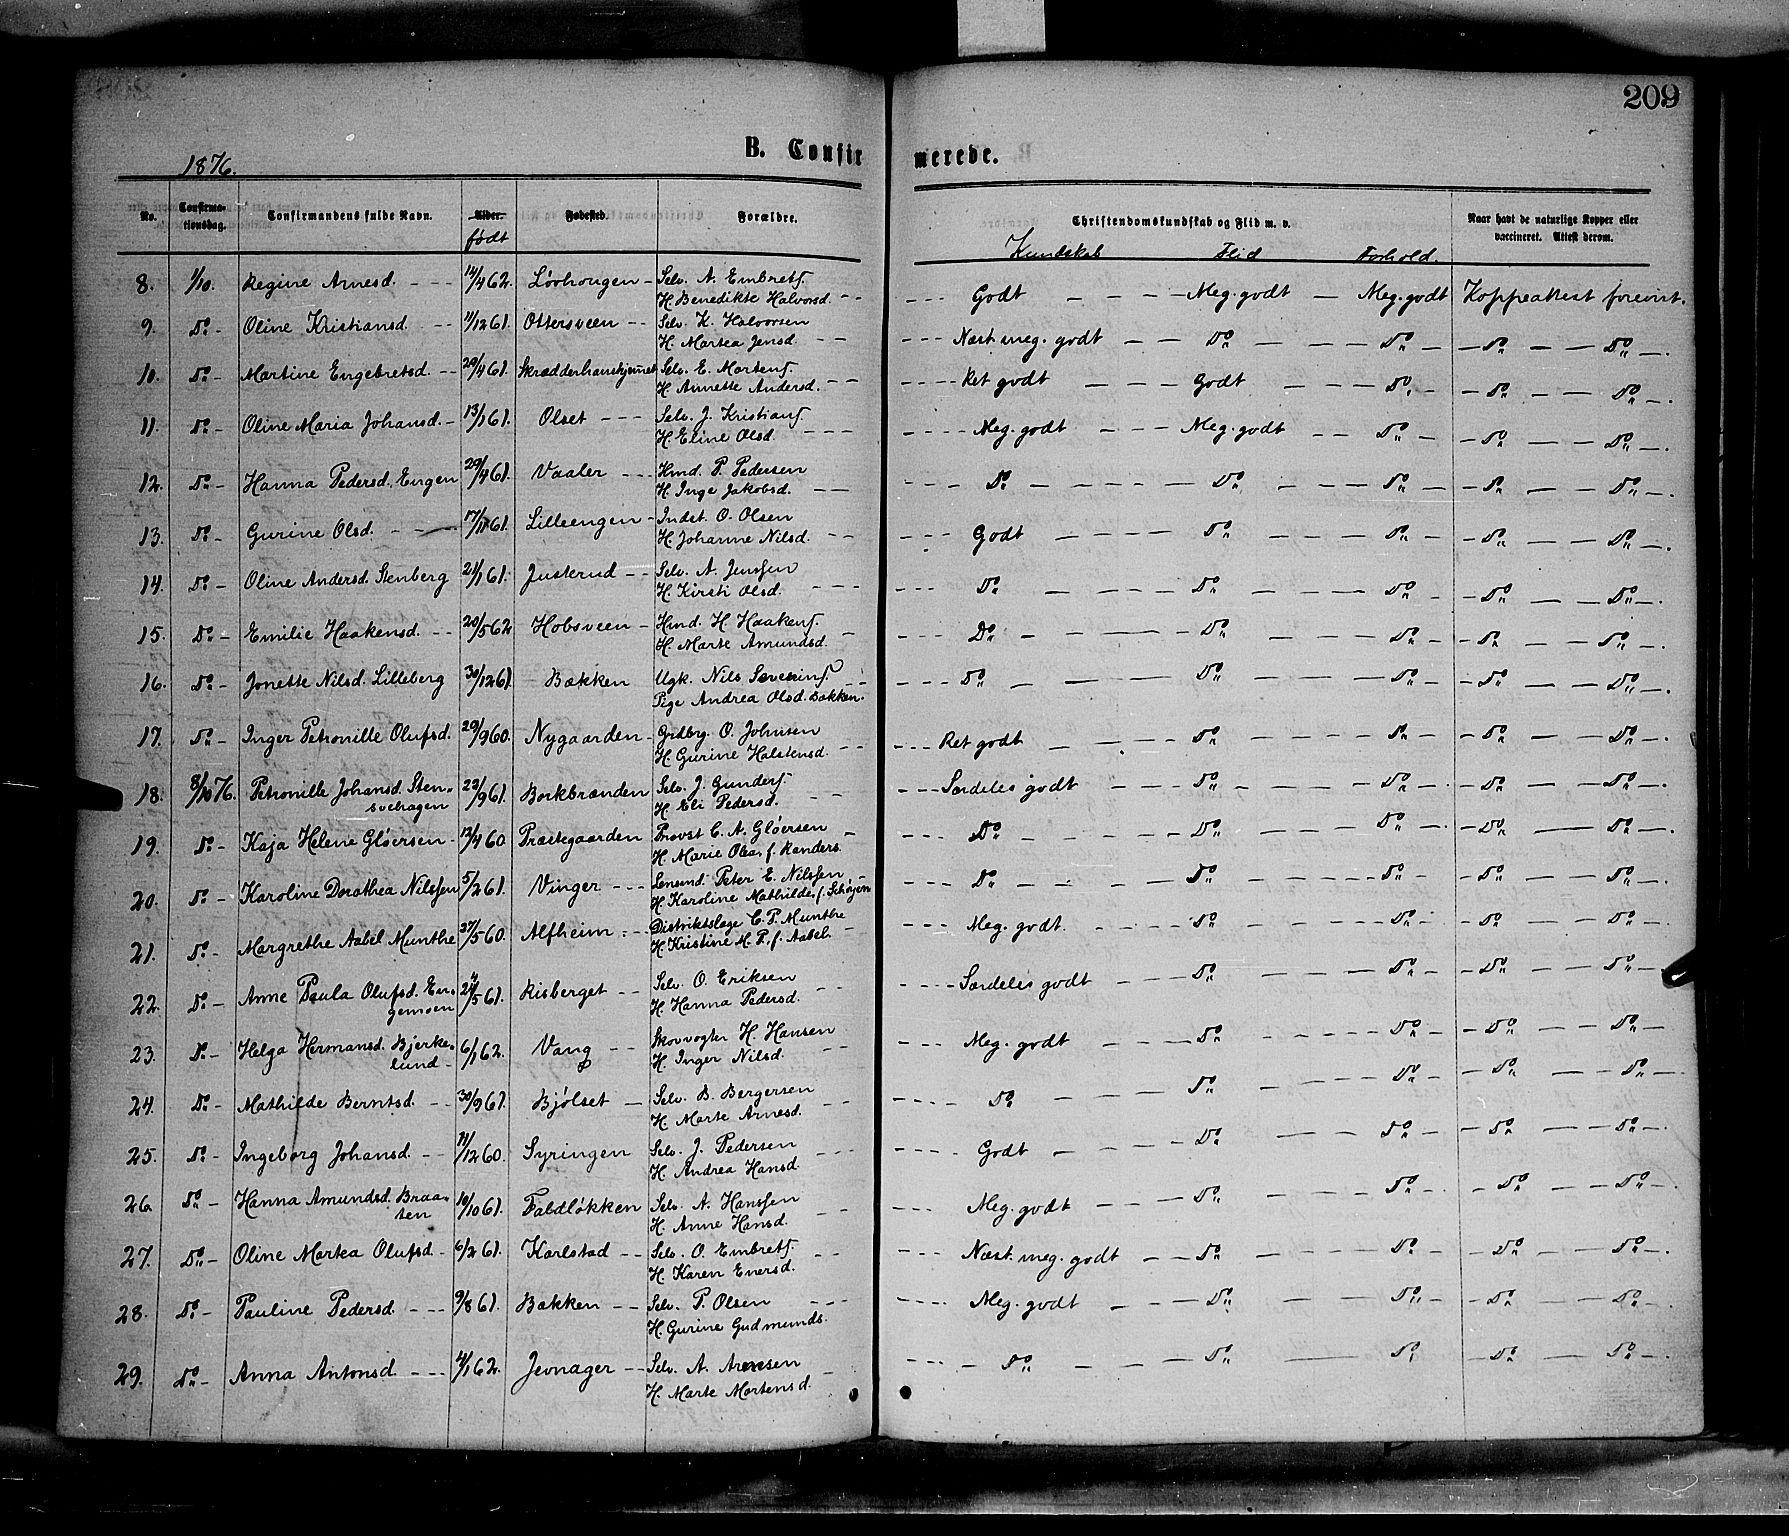 209
B. Confirmerede.
1876.
No. Confirmationsdag. Confirmandens fulde Navn. Alder. født Fødested. Forældre. Christendomskundskab og Flid m. v. Kundskab Flid Forhold. Naar havt de naturlige Kopper eller vaccineret. Attest derom.
8. 1/10. Regine Arnesd. - - - 14/4 62. Løvhougen - Selv. A. Embretf.
H. Benedikte Halvorsd. - - - - - Godt - - - Meg. godt - Meg. godt Koppeattest forevist.
9. Do - Oline Kristiansd. - - 11/12 61. Ottersveen - - Selv. K. Halvorsen
H. Martea Jensd. - - - - - Næst meg. godt - - Do - - Do - Do - - Do -.
10. Do - Martine Engebretsd. - - 29/4 61. Skrædderhanskjernet Selv. E. Mortenf.
H. Annette Andersd. - - - - - Ret godt - - - Godt - - Do - - Do - - Do -.
11. Do - Oline Maria Johansd. - 13/1 61. Olset - - - Selv. J. Kristianf
H. Eline Olsd. - - - - - - Meg. godt - - Meg. godt - - Do - - Do - - Do -.
12. Do - Hanna Pedersd. Engen 29/4 61. Vaaler - - - Hmd. P. Pedersen
H. Inge Jakobsd. - - - - - Do - - - - Do - - Do - - Do - - Do -.
13. Do - Gurine Olsd. - - - 17/11 61. Lilleengen - Indst. O. Olsen
H. Johanne Nilsd. - - - - - Godt - - - - Do - - Do - - Do - - Do -.
14. Do - Oline Andersd. Stenberg 21/1 61. Justerud - - Selv. A. Jenssen
H. Kirsti Olsd. - - - - - - Do - - - Do - - Do - - Do - - Do -.
15. Do - Emilie Haakensd. - - 20/5 62 Hobsveen - Hmd. H. Haakenf.
H. Marte Amundsd. - - - - Do - - - Do - - Do - - Do - - Do -.
16. Do - Jonette Nilsd. Lilleberg 30/12 61. Bækken Ugk. Nils Severinf.
Pige Andrea Olsd. Bakken. - - - - Do - - - Do - - Do - - Do - - Do -.
17. Do - Inger Petronille Olufsd. 29/9 60. Nygaarden - Grdbr. O. Johnsen
H. Gurine Halstensd. - - - - - Ret godt - - Do - - Do - - Do - - Do -.
18. 8/10 76. Petronille Johansd. Sten-
svehagen 23/9 61. Borkbrænden Selv. J. Gunderf.
H. Eli Pedersd. - - - - - Særdeles godt - - Do - - Do - - Do - - Do -.
19. Do - Kaja Helene Gløersen - 12/4 60. Præstegaarden Provst C. A. Gløersen
H. Marie Olea, f. Randers. - - - - Do - - - Do - - Do - - Do - - Do -.
20. Do - Karoline Dorothea Nilssen 5/2 61. Vinger - - - Lensmd. Peter E. Nilssen -
H. Karoline Mathilde, f. - - - Do - - - Do - - Do - - Do - - Do -.
21. Do - Margrethe Aabel Munthe 27/5 60. Alfheim. - - Distriktslæge C. P. Munthe
H. Kristine M. P. f. Aabel. - - - - Meg. godt. - - - Do - - Do - - Do - - Do -.
22. Do - Anne Paula Olufsd. En-
gemoen 24/5 61. Risberget - - Selv. O. Eriksen
H. Hanna Pedersd. - - - - - Særdeles godt - - Do - - Do - - Do - - Do -.
23. Do - Helga Hermansd. Bjerke-
lund - 6/1 62. Vang - - Skovvogter H. Hansen
H. Inger Nilsd. - - - - - Meg. godt - - - Do - - Do - - Do - - Do -
24. Do - Mathilde Berntsd. - - 30/9 61. Bjølset - Selv. B. Bergersen
H. Marte Arnesd. - - - - - Do - - Do - - Do - - Do - - Do -.
25. Do - Ingeborg Johansd. - - 11/12 60. Syringen Selv. J. Pedersen
H. Andrea Hansd. - - - - - - Godt - - - Do - - Do - - Do - - Do -.
26. Do - Hanna Amundsd. Braa-
ten 10/10 61. Faldløkken Selv. A. Hanssen
H. Anne Hansd. - - - - - Meg. godt - - Do - - Do - - Do - - Do -.
27. Do - Oline Martea Olufsd. - 6/2 61. Karlstad - - Selv. O. Embretf.
H. Karen Enersd. - - - - - Næst. meg. godt - Do - - Do - - Do - - Do -.
28. Do - Pauline Pedersd. - - - 9/8 61. Bakken - - Selv. P. Olsen - - -
H. Gurine Gudmunds. - - - - Meg. godt - - Do - - Do - - Do - - Do -.
29. Do - Anna Antonsd. - - - 4/1 62. Jevnager - - Selv. A. Arnesen
H. Marte Mortensd. - - - - - Do - - - Do - - Do - - Do - - Do -.